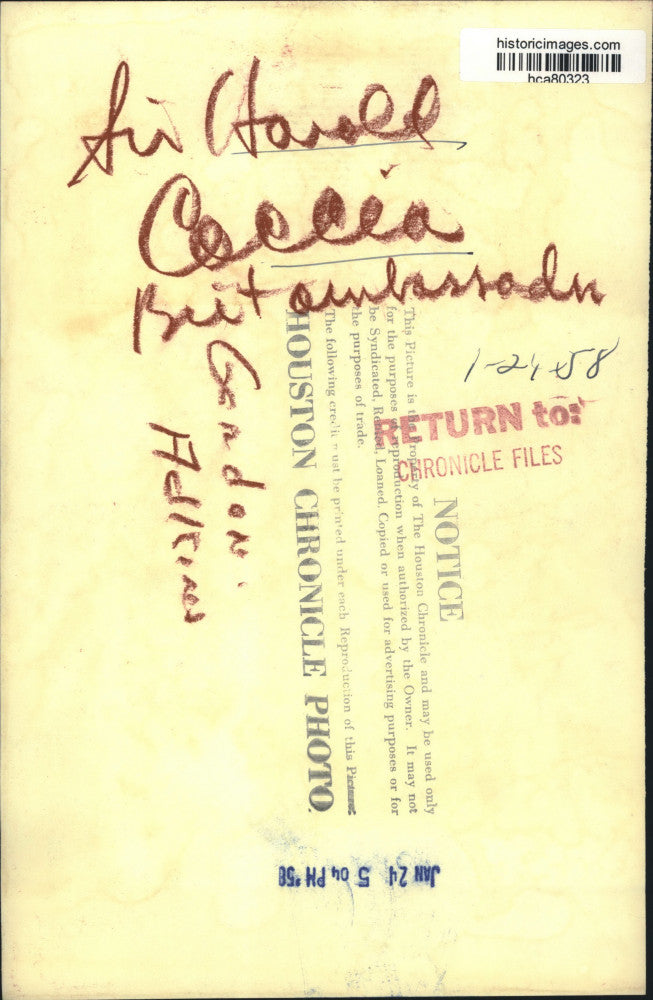 historicimages.com
hca80323
Sir Harold
Caccia
Brit ambassador
Gordon
Adkins
1-24-58
RETURN to:
CHRONICLE FILES
NOTICE
This Picture is the Property of The Houston Chronicle and may be used only
for the purposes of reproduction when authorized by the Owner. It may not
be Syndicated, Rented, Loaned, Copied or used for advertising purposes or for
the purposes of trade.
The following credit must be printed under each Reproduction of this Picture:
HOUSTON CHRONICLE PHOTO.
JAN 24 5 04 PM '58